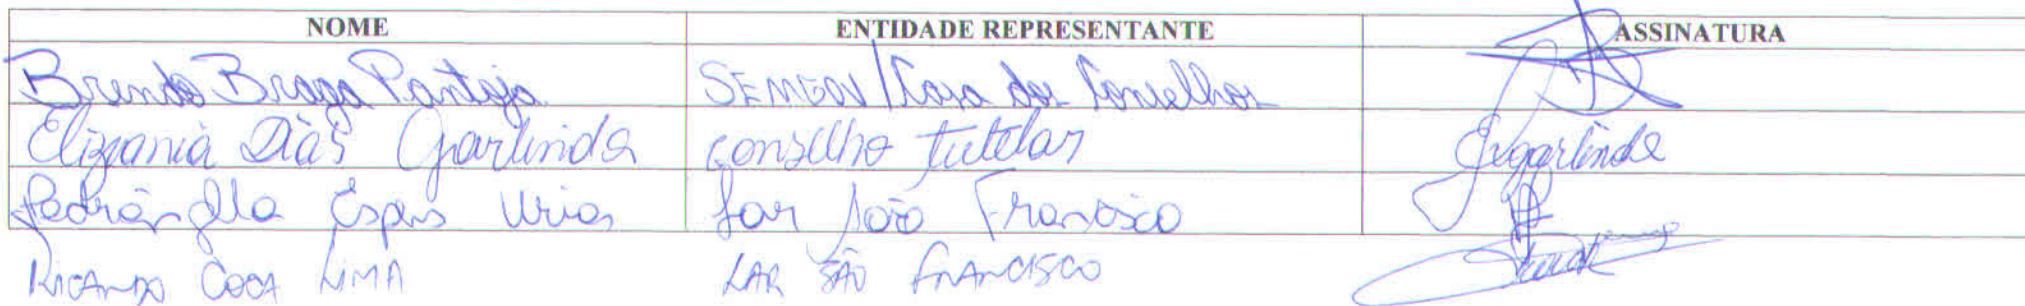 NOME ENTIDADE REPRESENTANTE ASSINATURA
Brenda Braga Pantoja SEMGOV/Casa dos Conselhos
Elizania Dias Garlinda conselho tutelar Garlinda
Pedrângella Espns Urias Lar São Francisco
RICARDO COCA LIMA LAR SÃO FRANCISCO